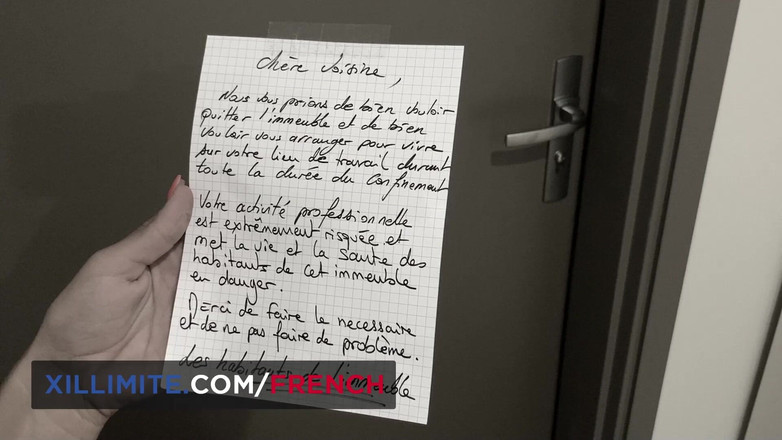 Chère voisine,
Nous vous prions de bien vouloir
quitter l'immeuble et de bien
vouloir vous arranger pour vivre
sur votre lieu de travail durant
toute la durée du confinement
Votre activité professionnelle
est extrêmement risquée et
met la vie et la santé des
habitants de cet immeuble
en danger.
Merci de faire le necessaire
et de ne pas faire de problème.
Les habitants de l'immeuble
XILLIMITE.COM/FRENCH